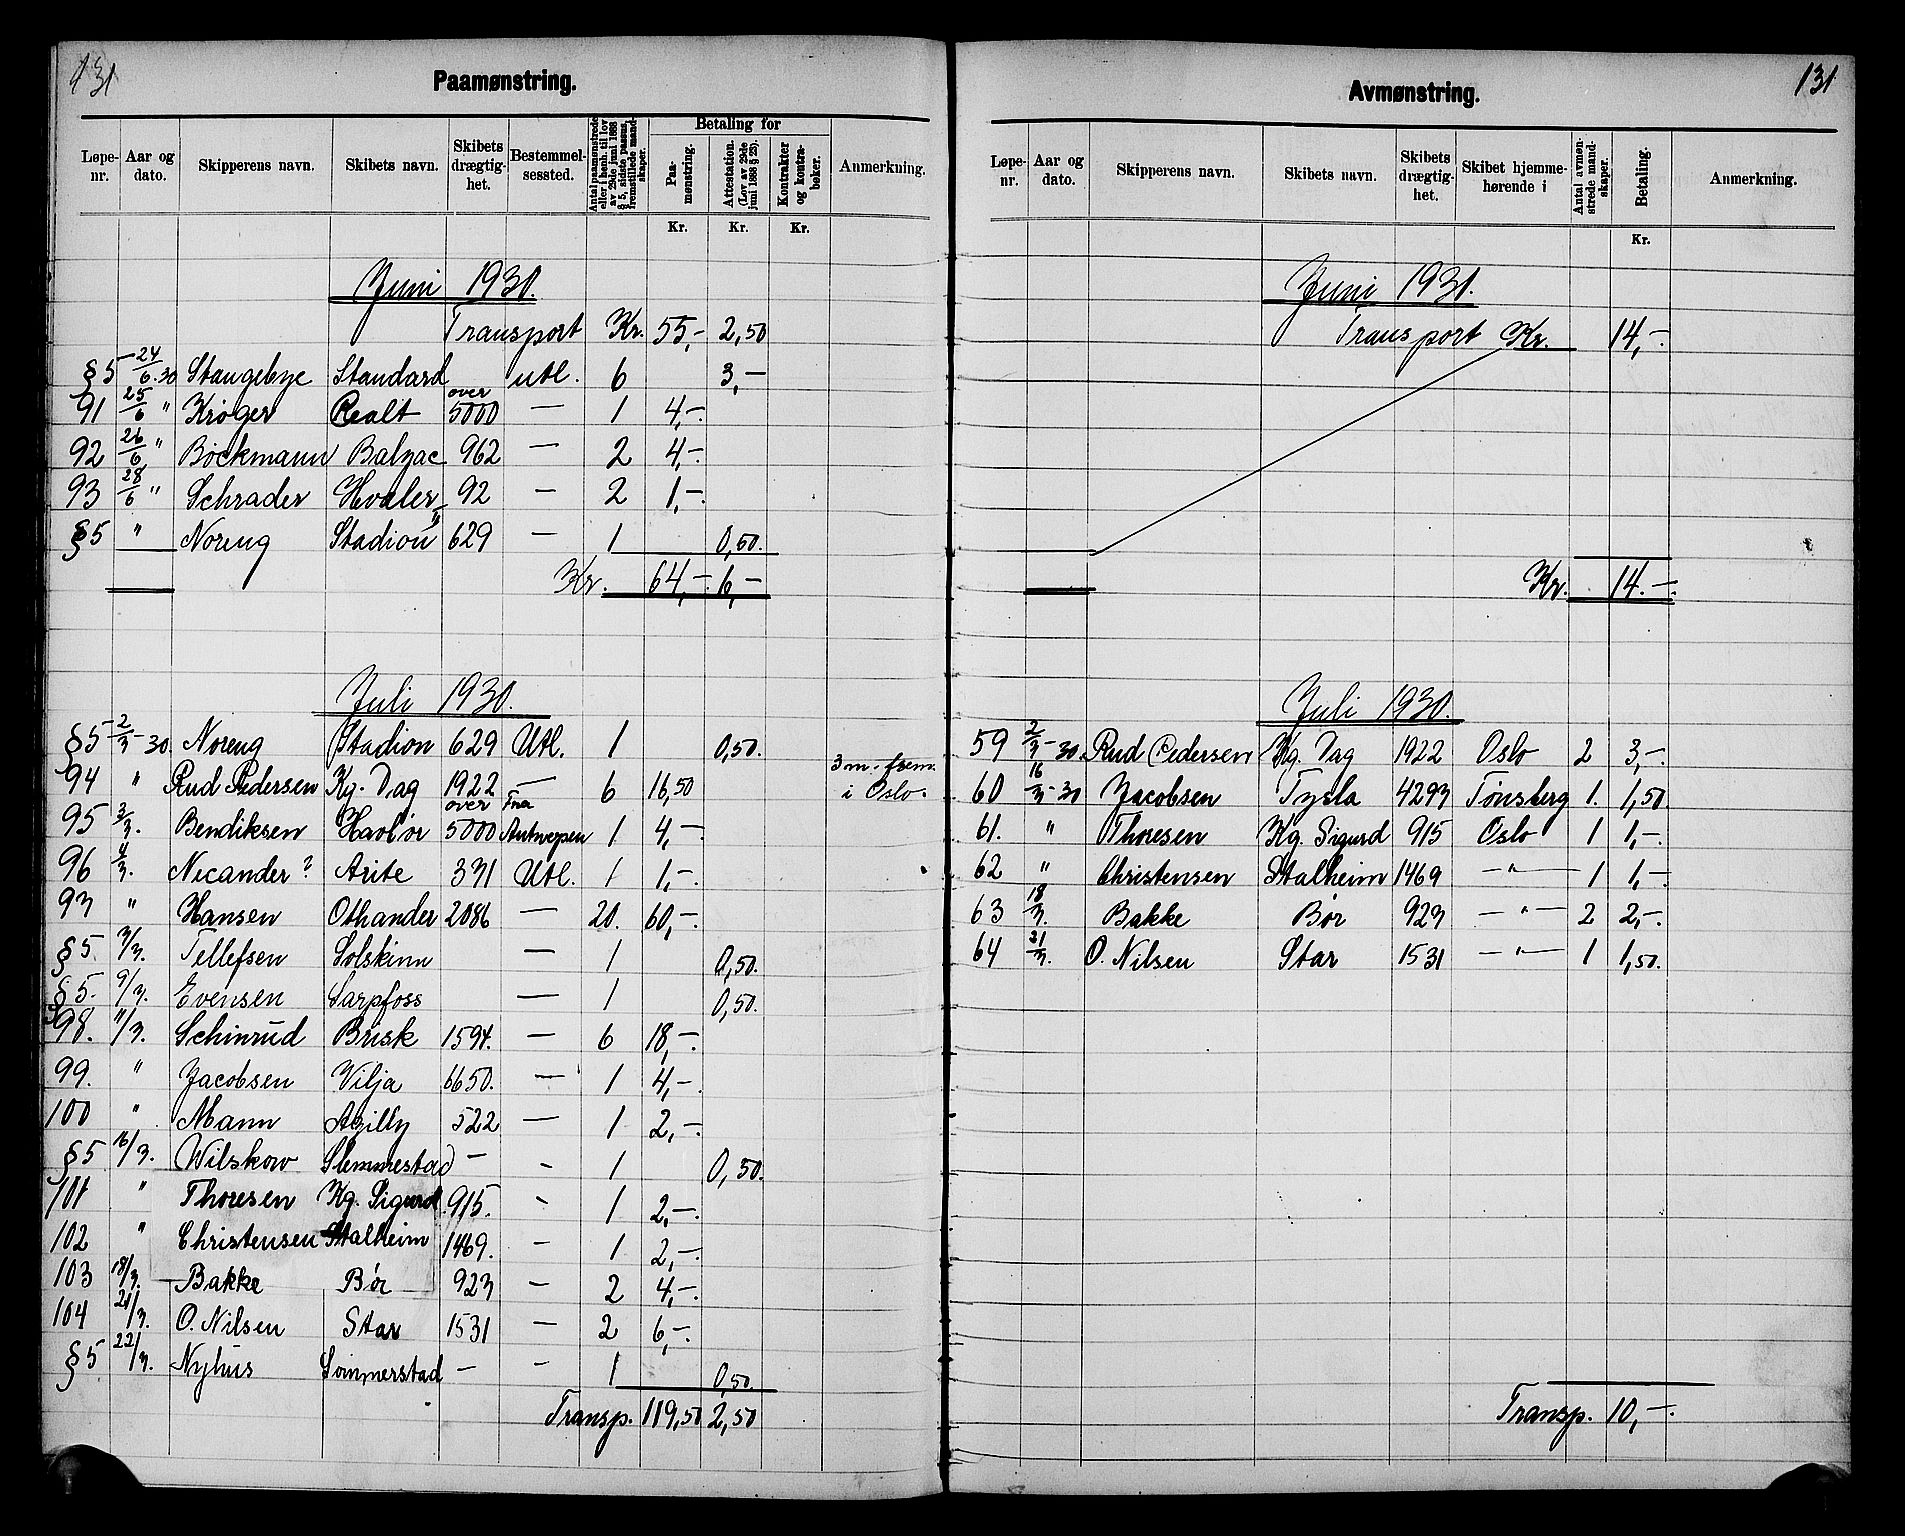 131
Paamønstring.
Løpe-nr. Aar og dato. Skipperens navn. Skibets navn. Skibets drægtig-het. Bestemmel-sessted. Antal paamønstrede eller i henh. til lov av 29de juni 1888 § 5, sidste passus, fremstillede mand-skaper. Betaling for Paa-mønstring. Attestation. (Lov av 29de juni 1888 § 23). Kontrakter og kontra-bøker. Anmerkning.
Kr. Kr. Kr.
Juni 1930.
Transport Kr. 55,- 2,50
§5 24/6.30 Stangebye Standard utl. 6 3,-
91 25/6 " Krøger Realt over 5000 — 1 4,-
92 26/6 " Bockmann Balzac 962 — 2 4,-
93 28/6 " Schrader Hvaler 92 — 2 1,-
§5 " Noreng Stadion 629 — 1 0,50.
Kr. 64,- 6,-
Juli 1930.
§5 2/7-30. Noreng Stadion 629 Utl. 1 0,50.
94 " Rud Pedersen Kg. Dag 1922 — 6 16,50 3 m. frem. i Oslo.
95 3/7. Bendiksen Havbør over 5000 Fra Antwerpen 1 4,-
96 4/7. Nicander? Arite 331 Utl. 1 1,-.
97 " Hansen Othander 2086 — 20. 60,-
§5. 7/7. Tellefsen Solskinn — 1 0,50.
§5. 9/7. Evensen Sarpfoss — 1 0,50.
98. 11/7. Schinrud Brisk 1594. — 6 18,-
99. " Jacobsen Vilja 6650. — 1 4,-
100 " Mann 522 — 1 2,-.
§5 16/7. Wilskow Slemmestad — - 1 0,50.
101 " Thoresen Kg. Sigurd 915. - 1 2,-.
102 " Christensen Stalheim 1469. - 1 2,-.
103 18/7. Bakke Bør 923 — 2 4,-.
104 21/7. O. Nilsen Star 1531 — 2 6,-.
§5 22/7. Nyhus Sommerstad — - 1 0,50.
Transp. 119,50 2,50
131
Avmønstring.
Løpe-nr. Aar og dato. Skipperens navn. Skibets navn. Skibets drægtig-het. Skibet hjemme-hørende i Antal avmøn-strede mand-skaper. Betaling. Anmerkning.
Kr.
Juni 1930.
Transport Kr. 14,-
Kr. 14.-.
Juli 1930.
59 2/7-30. Rud Pedersen Kg. Dag 1922 Oslo 2 3,-
60 16/7-30 Jacobsen Tysla 4293 Tønsberg 1. 1,50.
61. " Thoresen Kg. Sigurd 915 Oslo 1 1,-.
62 " Christensen Stalheim 1469 —"— 1 1,-.
63 18/7. Bakke Bør 923 —"— 2 2,-.
64 21/7. O. Nilsen Star 1531 —"— 1 1,50.
Transp. 10,-.